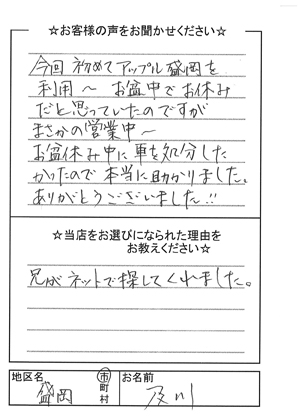 ☆お客様の声をお聞かせください☆
今回初めてアップル盛岡を
利用〜 お盆中でお休み
だと思っていたのですが
まさかの営業中〜
お盆休み中に車を処分した
かったので本当に助かりました。
ありがとうございました!!
☆当店をお選びになられた理由を
お教えください☆
兄がネットで探してくれました。
地区名 盛岡 市町村 お名前 及川